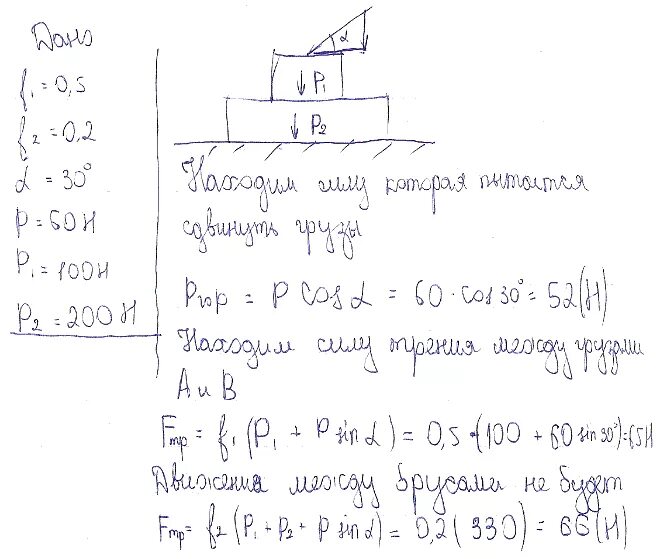 Дано
f₁ = 0,5
f₂ = 0,2
α = 30°
P = 60 Н
P₁ = 100 Н
P₂ = 200 Н
α
P₁
P₂
Находим силу которая пытается
сдвинуть грузы
Pгор = P cos α = 60 · cos 30° = 52 (Н)
Находим силу трения между грузами
А и В
Fтр = f₁ (P₁ + P sin α) = 0,5 · (100 + 60 sin 30°) = 65 Н
Движения между брусами не будет
Fтр = f₂ (P₁ + P₂ + P sin α) = 0,2 (330) = 66 (Н)